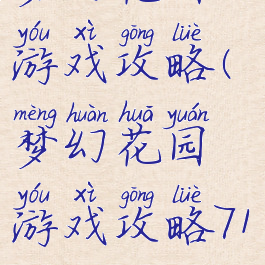 yóu xì gōng lüè
游戏攻略(
mèng huàn huā yuán
梦幻花园
yóu xì gōng lüè
游戏攻略71